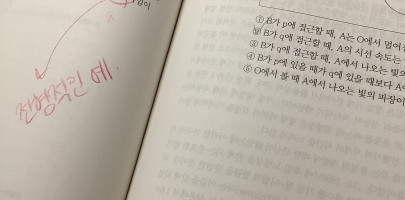 점이
전형적인 예.
① B가 p에 접근할 때, A는 O에서 멀어
② B가 q에 접근할 때, A의 시선 속도는
③ B가 q에 접근할 때, A에서 나오는 빛의
④ B가 p에 있을 때가 q에 있을 때보다 A에
⑤ O에서 볼 때 A에서 나오는 빛의 파장이